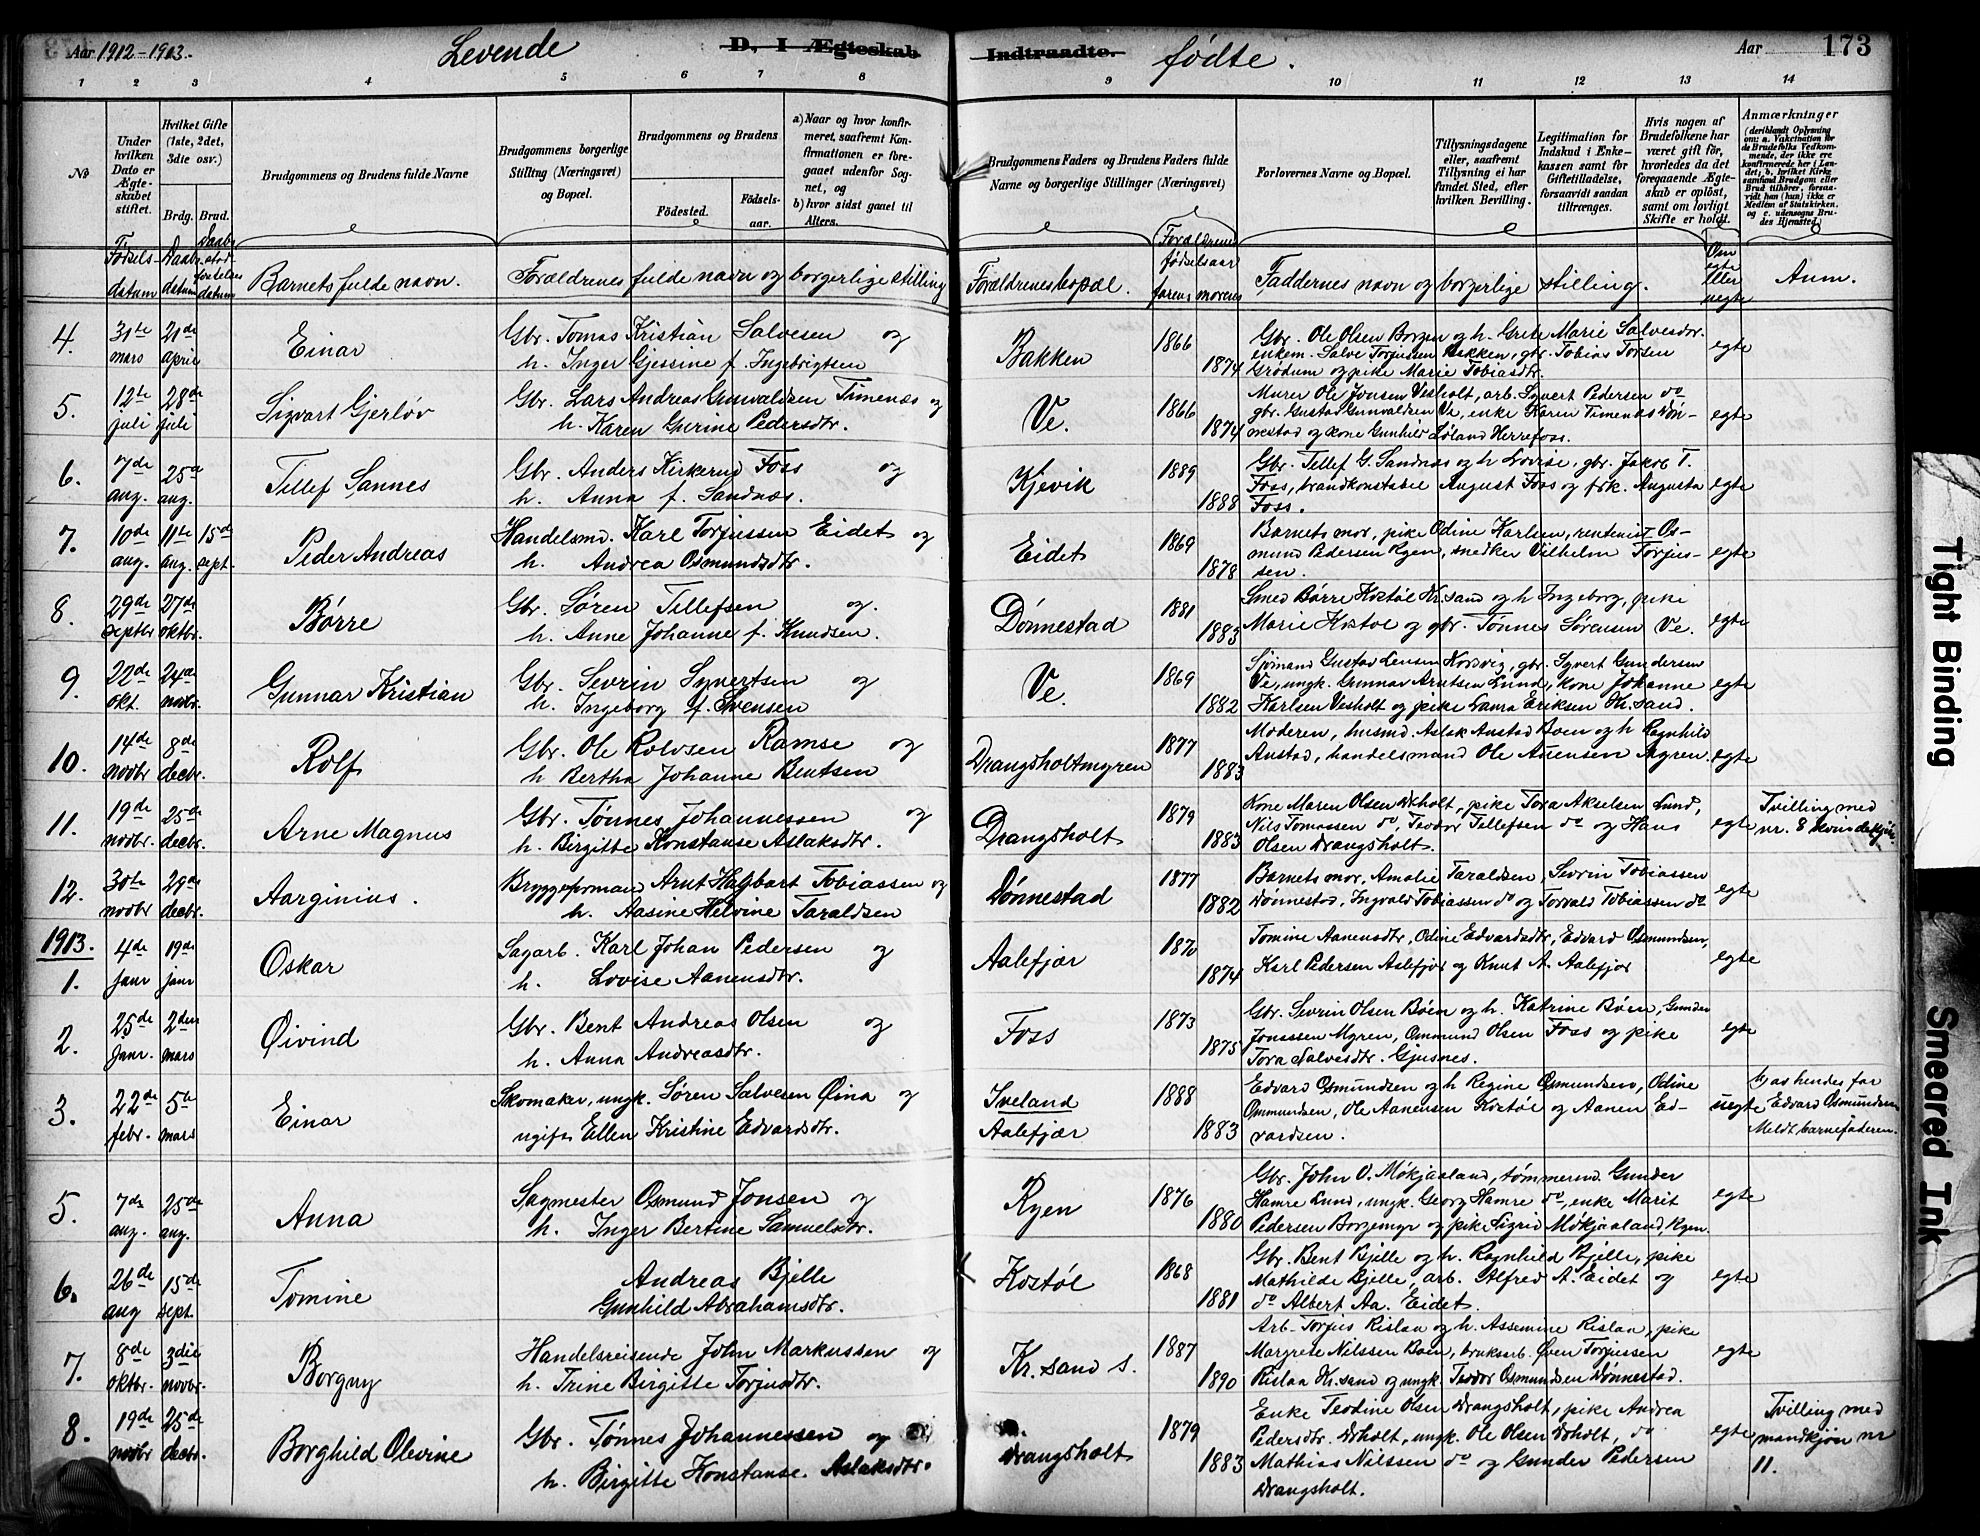 Aar 1912-1913.
Levende
D. I Ægteskab
Indtraadte.
fødte.
Aar
173
1 2 3 4 5 6 7 8 9 10 11 12 13 14
No
Under hvilken Dato er Ægteskabet stiftet.
Hvilket Gifte (1ste, 2det, 3die osv.)
Brdg. Brud.
Brudgommens og Brudens fulde Navne
Brudgommens borgerlige Stilling (Næringsvei) og Bopæl.
Brudgommens og Brudens
Fødested.
Fødselsaar.
a) Naar og hvor konfirmeret, saafremt Konfirmationen er foregaaet udenfor Sognet, og
b) hvor sidst gaaet til Alters.
Brudgommens Faders og Brudens Faders fulde Navne og borgerlige Stillinger (Næringsvei)
Forlovernes Navne og Bopæl.
Tillysningsdagene eller, saafremt Tillysning ei har fundet Sted, efter hvilken Bevilling.
Legitimation for Indskud i Enkekassen samt for Giftetilladelse, forsaavidt saadan tiltrænges.
Hvis nogen af Brudefolkene har været gift før, hvorledes da det foregaaende Ægteskab er opløst, samt om lovligt Skifte er holdt.
Anmærkninger
(deriblandt Oplysning om: a. Vakcination for de Brudefolks Vedkommende, der ikke ere konfirmerede her i Landet; b. hvilket Kirkesamfund Brudgom eller Brud tilhører, forsaavidt han (hun) ikke er Medlem af Statskirken, og c. udensogns Brudes Hjemsted.)
Fødselsdatum
Daabsdatum
Daabsstadfæstelsesdatum
Barnets fulde navn.
Forældrenes fulde navn og borgerlige stilling
Forældrenes bopæl.
Forældrenes fødselsaar
farens morens
Faddernes navn og borgerlige stilling.
Om egte eller uegte
Anm.
4. 31te mars 21de april Einar
Gbr. Tomas Kristian Salvesen og
h. Inger Gjessine f. Ingebrigtsen
Bakken 1866 1874
Gbr. Ole Olsen Borgen og h. Grete Marie Salvesdtr.
enkem. Salve Torjussen Bakken, gbr. Tobias Torsen
Grødum og pike Marie Tobiasdtr.
egte
5. 12te juli 28de juli Sigvart Gjerløv
Gbr. Lars Andreas Gunvaldsen Timenæs og
h. Karen Gurine Pedersdtr.
Ve. 1866 1874
Murer Ole Jonsen Vesholt, arb. Syvert Pedersen do
gbr. Gustav Gunvaldsen Ve, enke Karen Timenæs Døn-
nestad og kone Gunhild Løland Herrefoss.
egte
6. 7de aug. 25de aug. Tellef Sannes
Gbr. Anders Kirkerud Foss og
h. Anna f. Sandnæs.
Kjevik 1889 1888
Gbr. Tellef G. Sandnæs og h Lovise, gbr. Jakob T.
Foss, brandkonstabel August Foss og frk. Augusta
Foss.
egte
7. 10de aug. 11te aug. 15de sept. Peder Andreas
Handelsmd. Karl Torjussen Eidet og
h. Andrea Osmundsdtr.
Eidet 1869 1878
Barnets mor, pike Odine Karlsen, rentenist Os-
mund Pedersen Ryen, snedker Vilhelm Torjus-
sen.
egte
8. 29de septbr 27de oktbr. Børre
Gbr. Søren Tellefsen og.
h. Anne Johanne f. Knudsen.
Dønnestad 1881 1883
Smed Børre Kostøl Kr.sand og h Ingeborg, pike
Marie Kostøl og gbr. Tønnes Sørensen Ve.
egte
9. 22de okt. 24de novbr. Gunnar Kristian
Gbr. Sevrin Syvertsen og
h. Ingeborg f. Svensen
Ve. 1869 1882
Sjømand Gustav Jensen Kosvig, gbr. Syvert Gundersen
Ve, ungk. Gunnar Arntsen Lund, kone Johanne
Karlsen Vesholt og pike Laura Eriksen Kr.sand.
egte
10. 14de novbr 8de decbr. Rolf
Gbr. Ole Rolvsen Ramse og
h Bertha Johanne Bentsen
Drangsholtmyren 1877 1883
Moderen, husmd. Aslak Austad Boen og h Ragnhild
Austad, handelsmand Ole Asiensen Myren.
egte
11. 19de novbr. 25de decbr. Arne Magnus
Gbr. Tønnes Johannessen og
h. Birgitte Konstanse Aslaksdtr.
Drangsholt 1879 1883
Kone Maren Olsen Drholt, pike Tora Akselsen Lund,
Nils Tomassen do, Teodor Tellefsen do og Hans
Olsen Drangsholt.
egte
Tvilling med
nr. 8 kvindekjøn.
12. 30te novbr 29de decbr. Aarginius.
Bryggeformand Arnt Hagbart Tobiassen og
h. Aasine Helvine Taraldsen
Dønnestad 1877 1882
Barnets mor, Amalie Taraldsen, Sevrin Tobiassen
Dønnestad, Ingvald Tobiassen do og Torvald Tobiassen do
egte
1913.
1. 4de janr 19de janr Oskar
Sagarb. Karl Johan Pedersen og
h. Lovise Aanensdtr.
Aalefjær 1870 1874
Tomine Aanensdtr, Odine Edvardsdtr, Edvard Osmundsen,
Karl Pedersen Aalefjær og Knut A. Aalefjær
egte
2. 25de janr. 2den mars Øivind
Gbr. Bent Andreas Olsen og
h. Anna Andreasdtr.
Foss 1873 1875
Gbr. Sevrin Olsen Bøen og h. Katrine Bøen, Gunder
Jonsssen Myren, Ommund Olsen Foss og pike
Tora Salvesdtr. Gjusnes.
egte
3. 22de febr. 5te mars Einar
Skomaker, ungk. Søren Salvesen Øina og
ugift Ellen Kristine Edvardsdtr.
Iveland
Aalefjær 1888 1883
Edvard Osmundsen og h Regine Osmundsen, Odine
Ommundsen, Ole Aanensen Kostøl og Aanen Ed-
vardsen.
uegte
hjas hendes far
Edvard Osmundsen
Meldt barnefaderen.
5. 7de aug. 25de aug. Anna
Sagmester Osmund Jonsen og
h. Inger Bertine Samuelsdtr.
Ryen 1876 1880
Gbr. John O. Møkjaaland, tømmermd. Gunder
Hamre Lund, ungk. Georg Hamre do, enke Marit
Pedersen Borgemyr og pike Sigrid Møkjaaland, Ryen.
egte
6. 26de aug 15de sept. Tomine
Andreas Bjelle
Gunhild Abrahamsdtr.
Kostøl 1868 1881
Gbr. Bent Bjelle og h. Ragnhild Bjelle, pike
Mathilde Bjelle, arb. Alfred A. Eidet og
do Albert Aa. Eidet.
egte
7. 8de oktbr. 3die novbr. Borgny
Handelsreisende John Markussen og
h. Trine Birgitte Torjusdtr.
Kr.sand S. 1887 1890
Arb. Torjus Rislaa og h. Assemine Rislaa, pike
Margrete Nilssen Boen, bruksarb. Øven Torjussen
Rislaa Kr.sand og ungk. Teodor Osmundsen Dønnestad.
egte
8. 19de novbr 25de decbr. Borghild Olevine
Gbr. Tønnes Johannessen og
h. Birgitte Konstanse Aslaksdtr.
Drangsholt 1879 1883
Enke Teodine Olsen Drangsholt, pike Andrea
Pedersdtr. Drholt, ungk. Ole Olsen Drholt, do
Mathias Nilssen do og Gunder Pedersen
Drangsholt.
egte
Tvilling med
mandkjøn nr
11.
Tight Binding
Smeared Ink